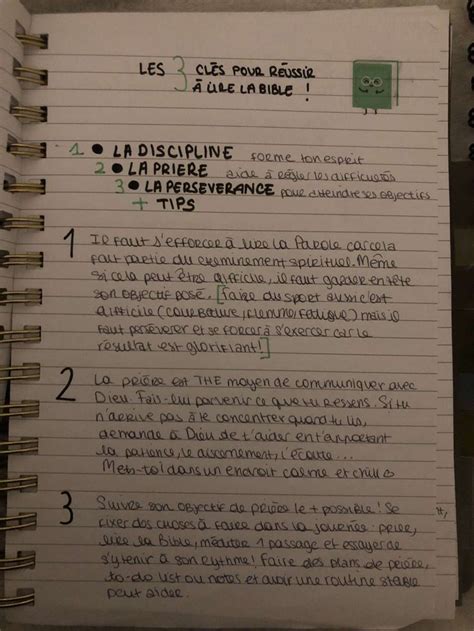 LES 3 CLÉS POUR RÉUSSIR
À LIRE LA BIBLE !
1 • LA DISCIPLINE forme ton esprit
2 • LA PRIERE aide à régler les difficultés
3 • LA PERSEVERANCE pour atteindre ses objectifs
+ TIPS
1 Il faut s'efforcer à lire la Parole car cela
fait partie du cheminement spirituel. Même
si cela peut être difficile, il faut garder en tête
son objectif posé. [faire du sport aussi c'est
difficile (courbature, flemme, fatigue) mais il
faut persévérer et se forcer à s'exercer car le
résultat est glorifiant!]
2 La prière est THE moyen de communiquer avec
Dieu. Fais-lui parvenir ce que tu ressens. Si tu
n'arrive pas à te concentrer quand tu lis,
demande à Dieu de t'aider en t'apportant
la patience, le discernement, l'écoute...
Mets-toi dans un endroit calme et chill
3 Suivre son objectif de prière le + possible! Se
fixer des choses à faire dans la journée: prier,
lire la Bible, méditer 1 passage et essayer de
s'y tenir à son rythme! Faire des plans de prière,
to-do list ou notes et avoir une routine stable
peut aider.